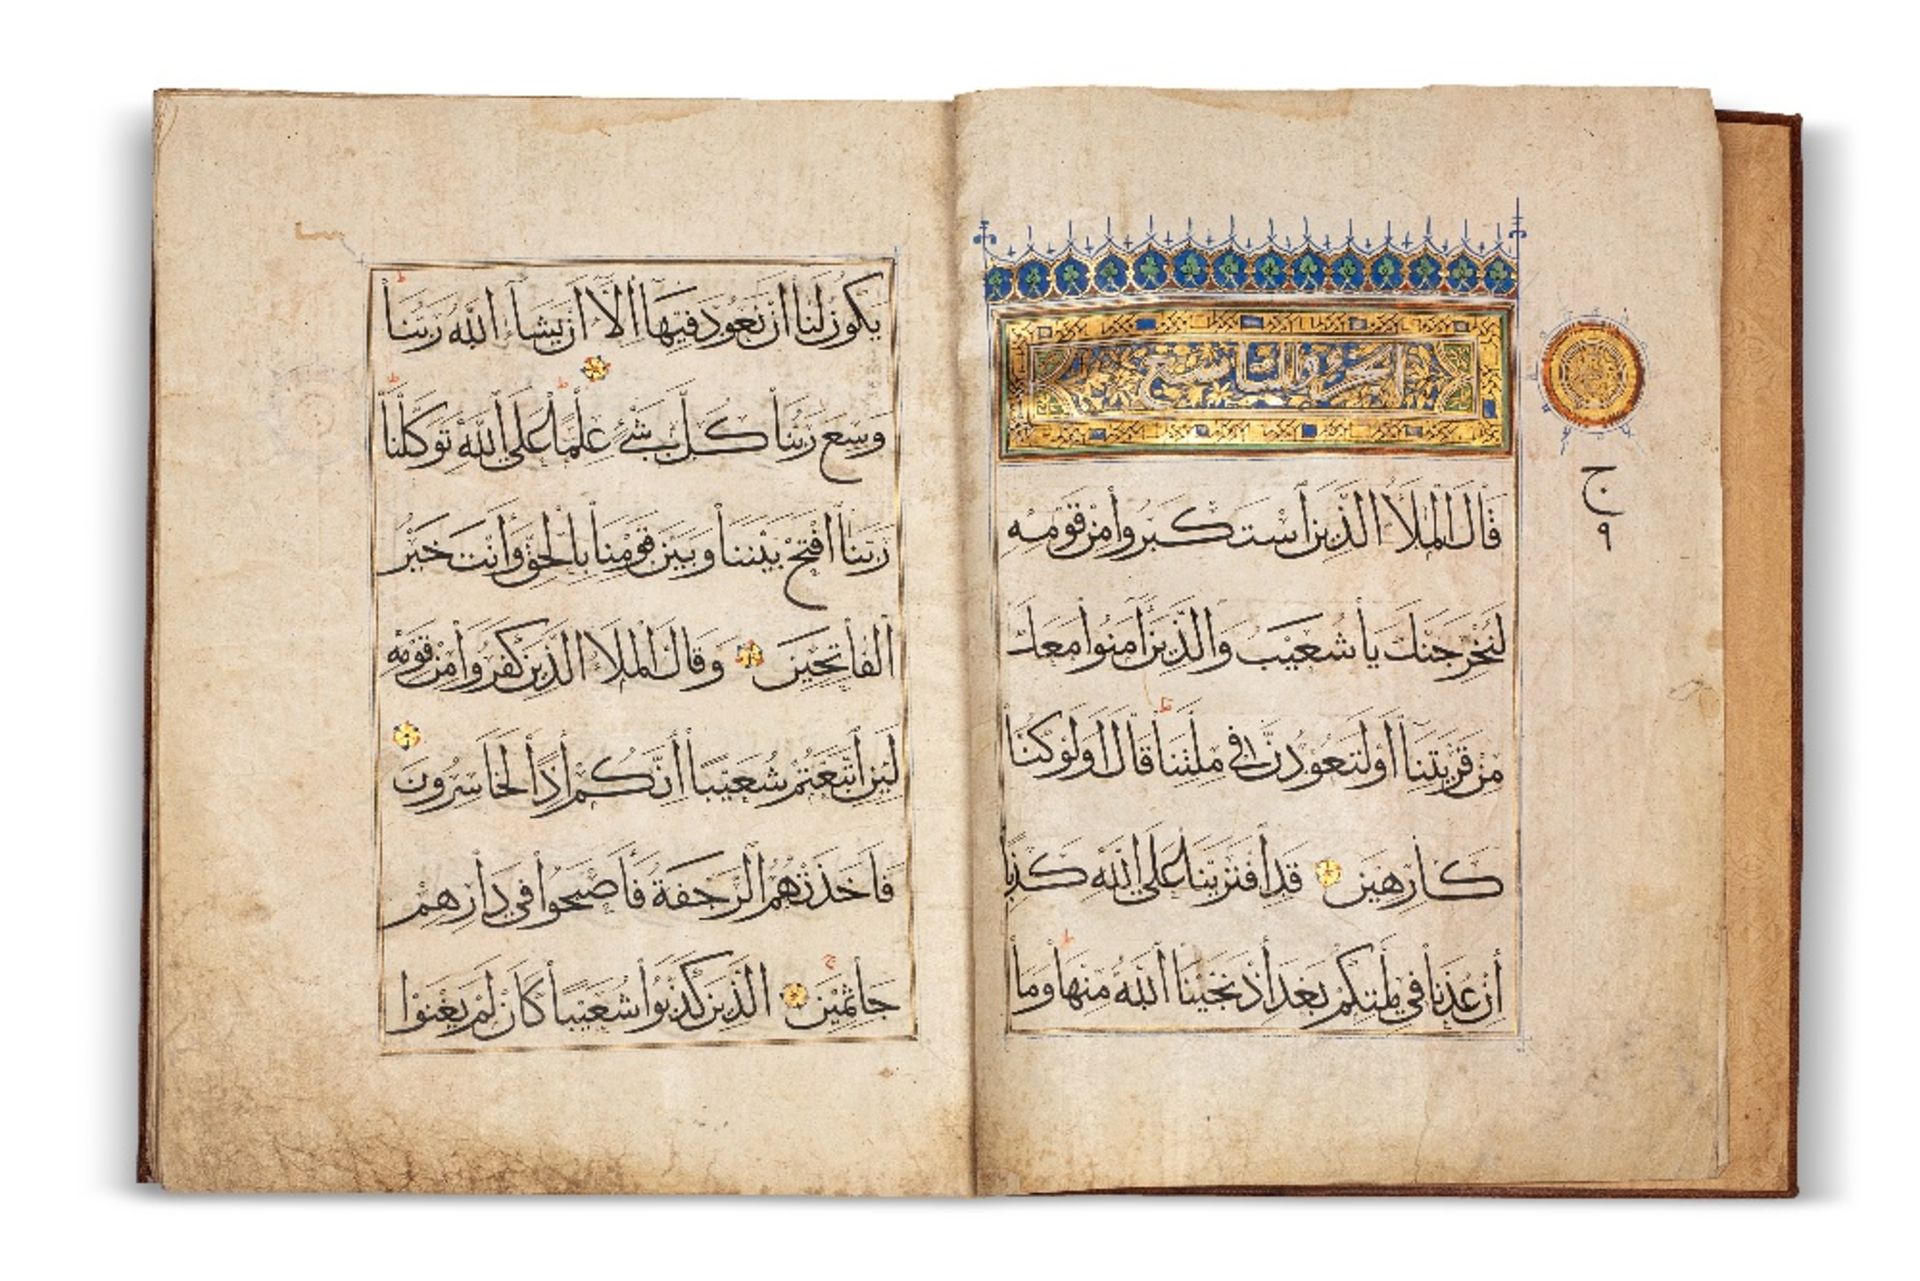 الجزو التاسع
ج
٩
قَالَ الْمَلَأُ الَّذِينَ اسْتَكْبَرُوا مِنْ قَوْمِهِ
لَنُخْرِجَنَّكَ يَا شُعَيْبُ وَالَّذِينَ آمَنُوا مَعَكَ
مِنْ قَرْيَتِنَا أَوْ لَتَعُودُنَّ فِي مِلَّتِنَا ط قَالَ أَوَلَوْ كُنَّا
كَارِهِينَ قَدِ افْتَرَيْنَا عَلَى اللَّهِ كَذِبًا
إِنْ عُدْنَا فِي مِلَّتِكُمْ بَعْدَ إِذْ نَجَّيْنَا اللَّهُ مِنْهَا ط وَمَا
يَكُونُ لَنَا أَنْ نَعُودَ فِيهَا إِلَّا أَنْ يَشَاءَ اللَّهُ رَبُّنَا ط
وَسِعَ رَبُّنَا كُلَّ شَيْءٍ عِلْمًا ط عَلَى اللَّهِ تَوَكَّلْنَا ط
رَبَّنَا افْتَحْ بَيْنَنَا وَبَيْنَ قَوْمِنَا بِالْحَقِّ وَأَنْتَ خَيْرُ
الْفَاتِحِينَ وَقَالَ الْمَلَأُ الَّذِينَ كَفَرُوا مِنْ قَوْمِهِ
لَئِنِ اتَّبَعْتُمْ شُعَيْبًا إِنَّكُمْ إِذًا لَخَاسِرُونَ
فَأَخَذَتْهُمُ الرَّجْفَةُ فَأَصْبَحُوا فِي دَارِهِمْ
جَاثِمِينَ ج الَّذِينَ كَذَّبُوا شُعَيْبًا كَأَنْ لَمْ يَغْنَوْا